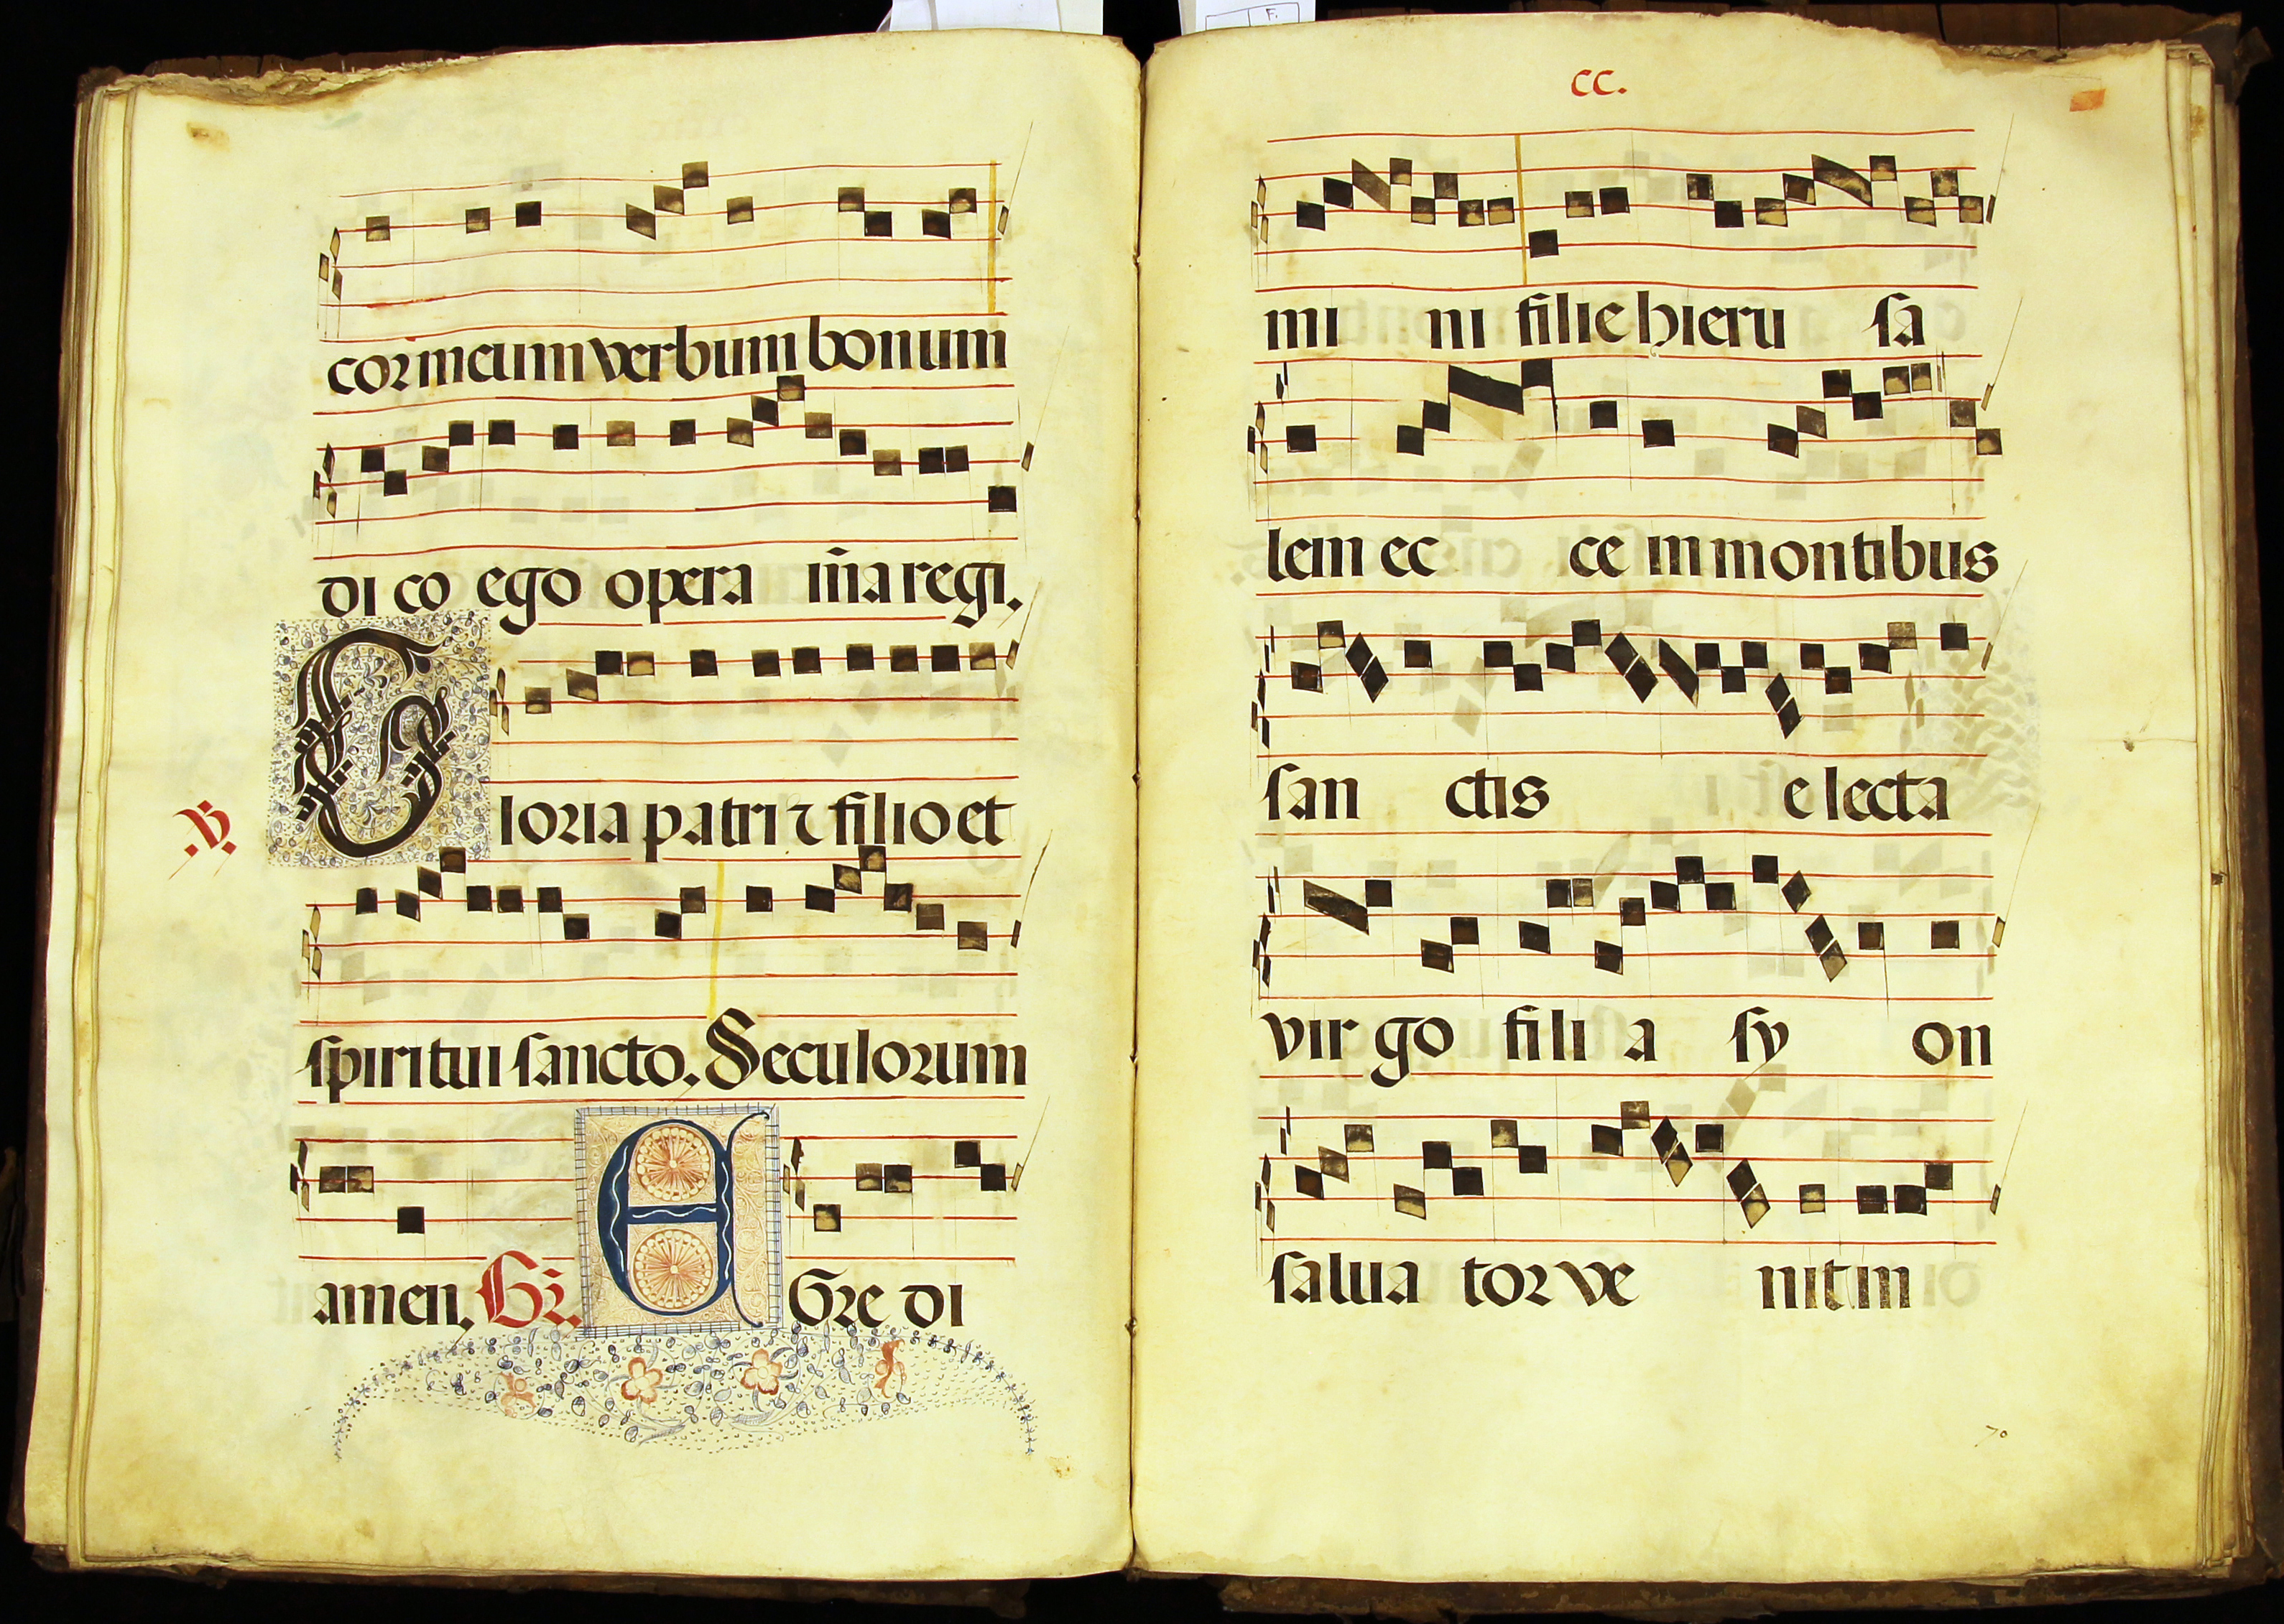 cor meum verbum bonum
di co ego opera m̃a regi.
Gloria patri ⁊ filio et
.V.
spiritui sancto. Seculorum
amen. Gr̃. EGre di
F.
CC.
mi ni filie hieru sa
lem ec ce in montibus
san ctis e lecta
vir go fili a sy on
salua tor ve nit in
70